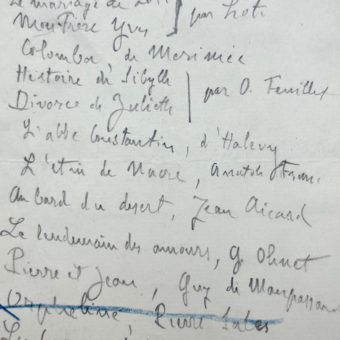 Le mariage de Loti
Mon Frère Yves } par Loti
Colomba, de Merimée
Histoire de Sibylle
Divorce de Juliette } par O. Feuillet
L'abbé Constantin, d'Halevy
L'etui de Nacre, Anatole France
Au bord du desert, Jean Aicard
Le lendemain des amours, G. Ohnet
Pierre et Jean, Guy de Maupassan
Orpheline, Pierre Sales